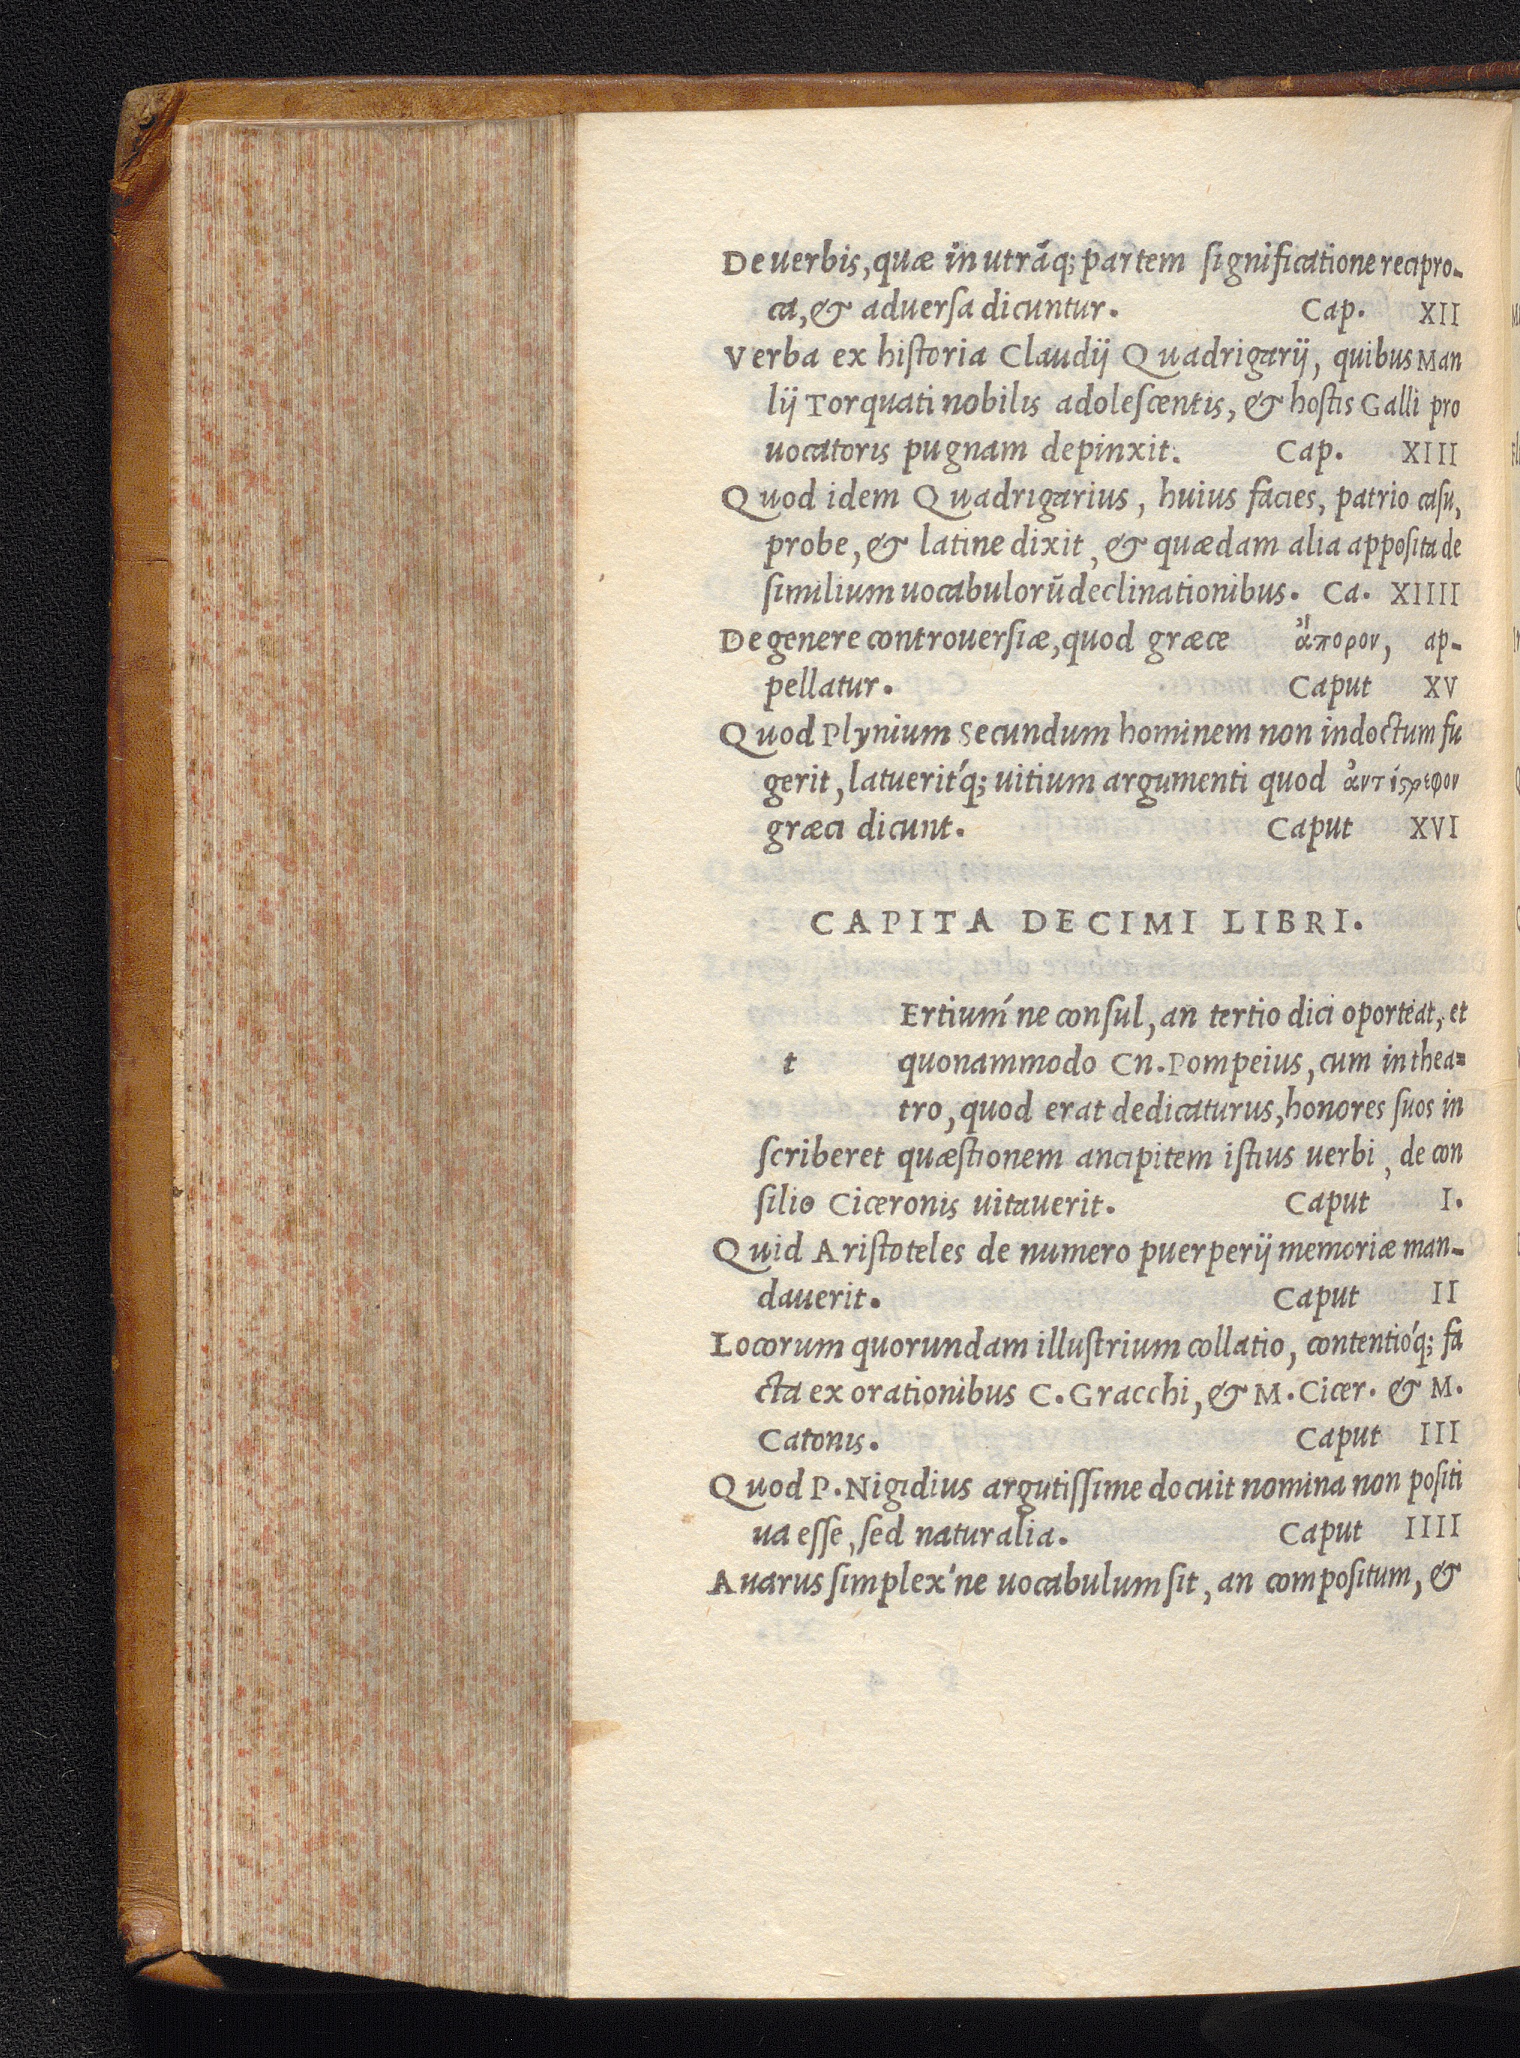 De uerbis, quæ in utrāq; partem significatione recipro-
ca, & aduersa dicuntur. Cap. XII
Verba ex historia Claudij Quadrigarij, quibus Man
lij Torquati nobilis adolescentis, & hostis Galli pro
uocatoris pugnam depinxit. Cap. XIII
Quod idem Quadrigarius, huius facies, patrio casu,
probe, & latine dixit, & quædam alia apposita de
similium uocabulorū declinationibus. Ca. XIIII
De genere controuersiæ, quod græce ἄπορον, ap-
pellatur. Caput XV
Quod Plynium Secundum hominem non indoctum fu
gerit, latuerit'q; uitium argumenti quod ἀντίϛρεφον
græci dicunt. Caput XVI
CAPITA DECIMI LIBRI.
Ertium'ne consul, an tertio dici oporteat, et
t quonammodo Cn. Pompeius, cum in thea=
tro, quod erat dedicaturus, honores suos in
scriberet quæstionem ancipitem istius uerbi, de con
silio Ciceronis uitauerit. Caput I.
Quid Aristoteles de numero puerperij memoriæ man-
dauerit. Caput II
Locorum quorundam illustrium collatio, contentio'q; fa
cta ex orationibus C. Gracchi, & M. Cicer. & M.
Catonis. Caput III
Quod P. Nigidius argutissime docuit nomina non positi
ua esse, sed naturalia. Caput IIII
Auarus simplex'ne uocabulum sit, an compositum, &